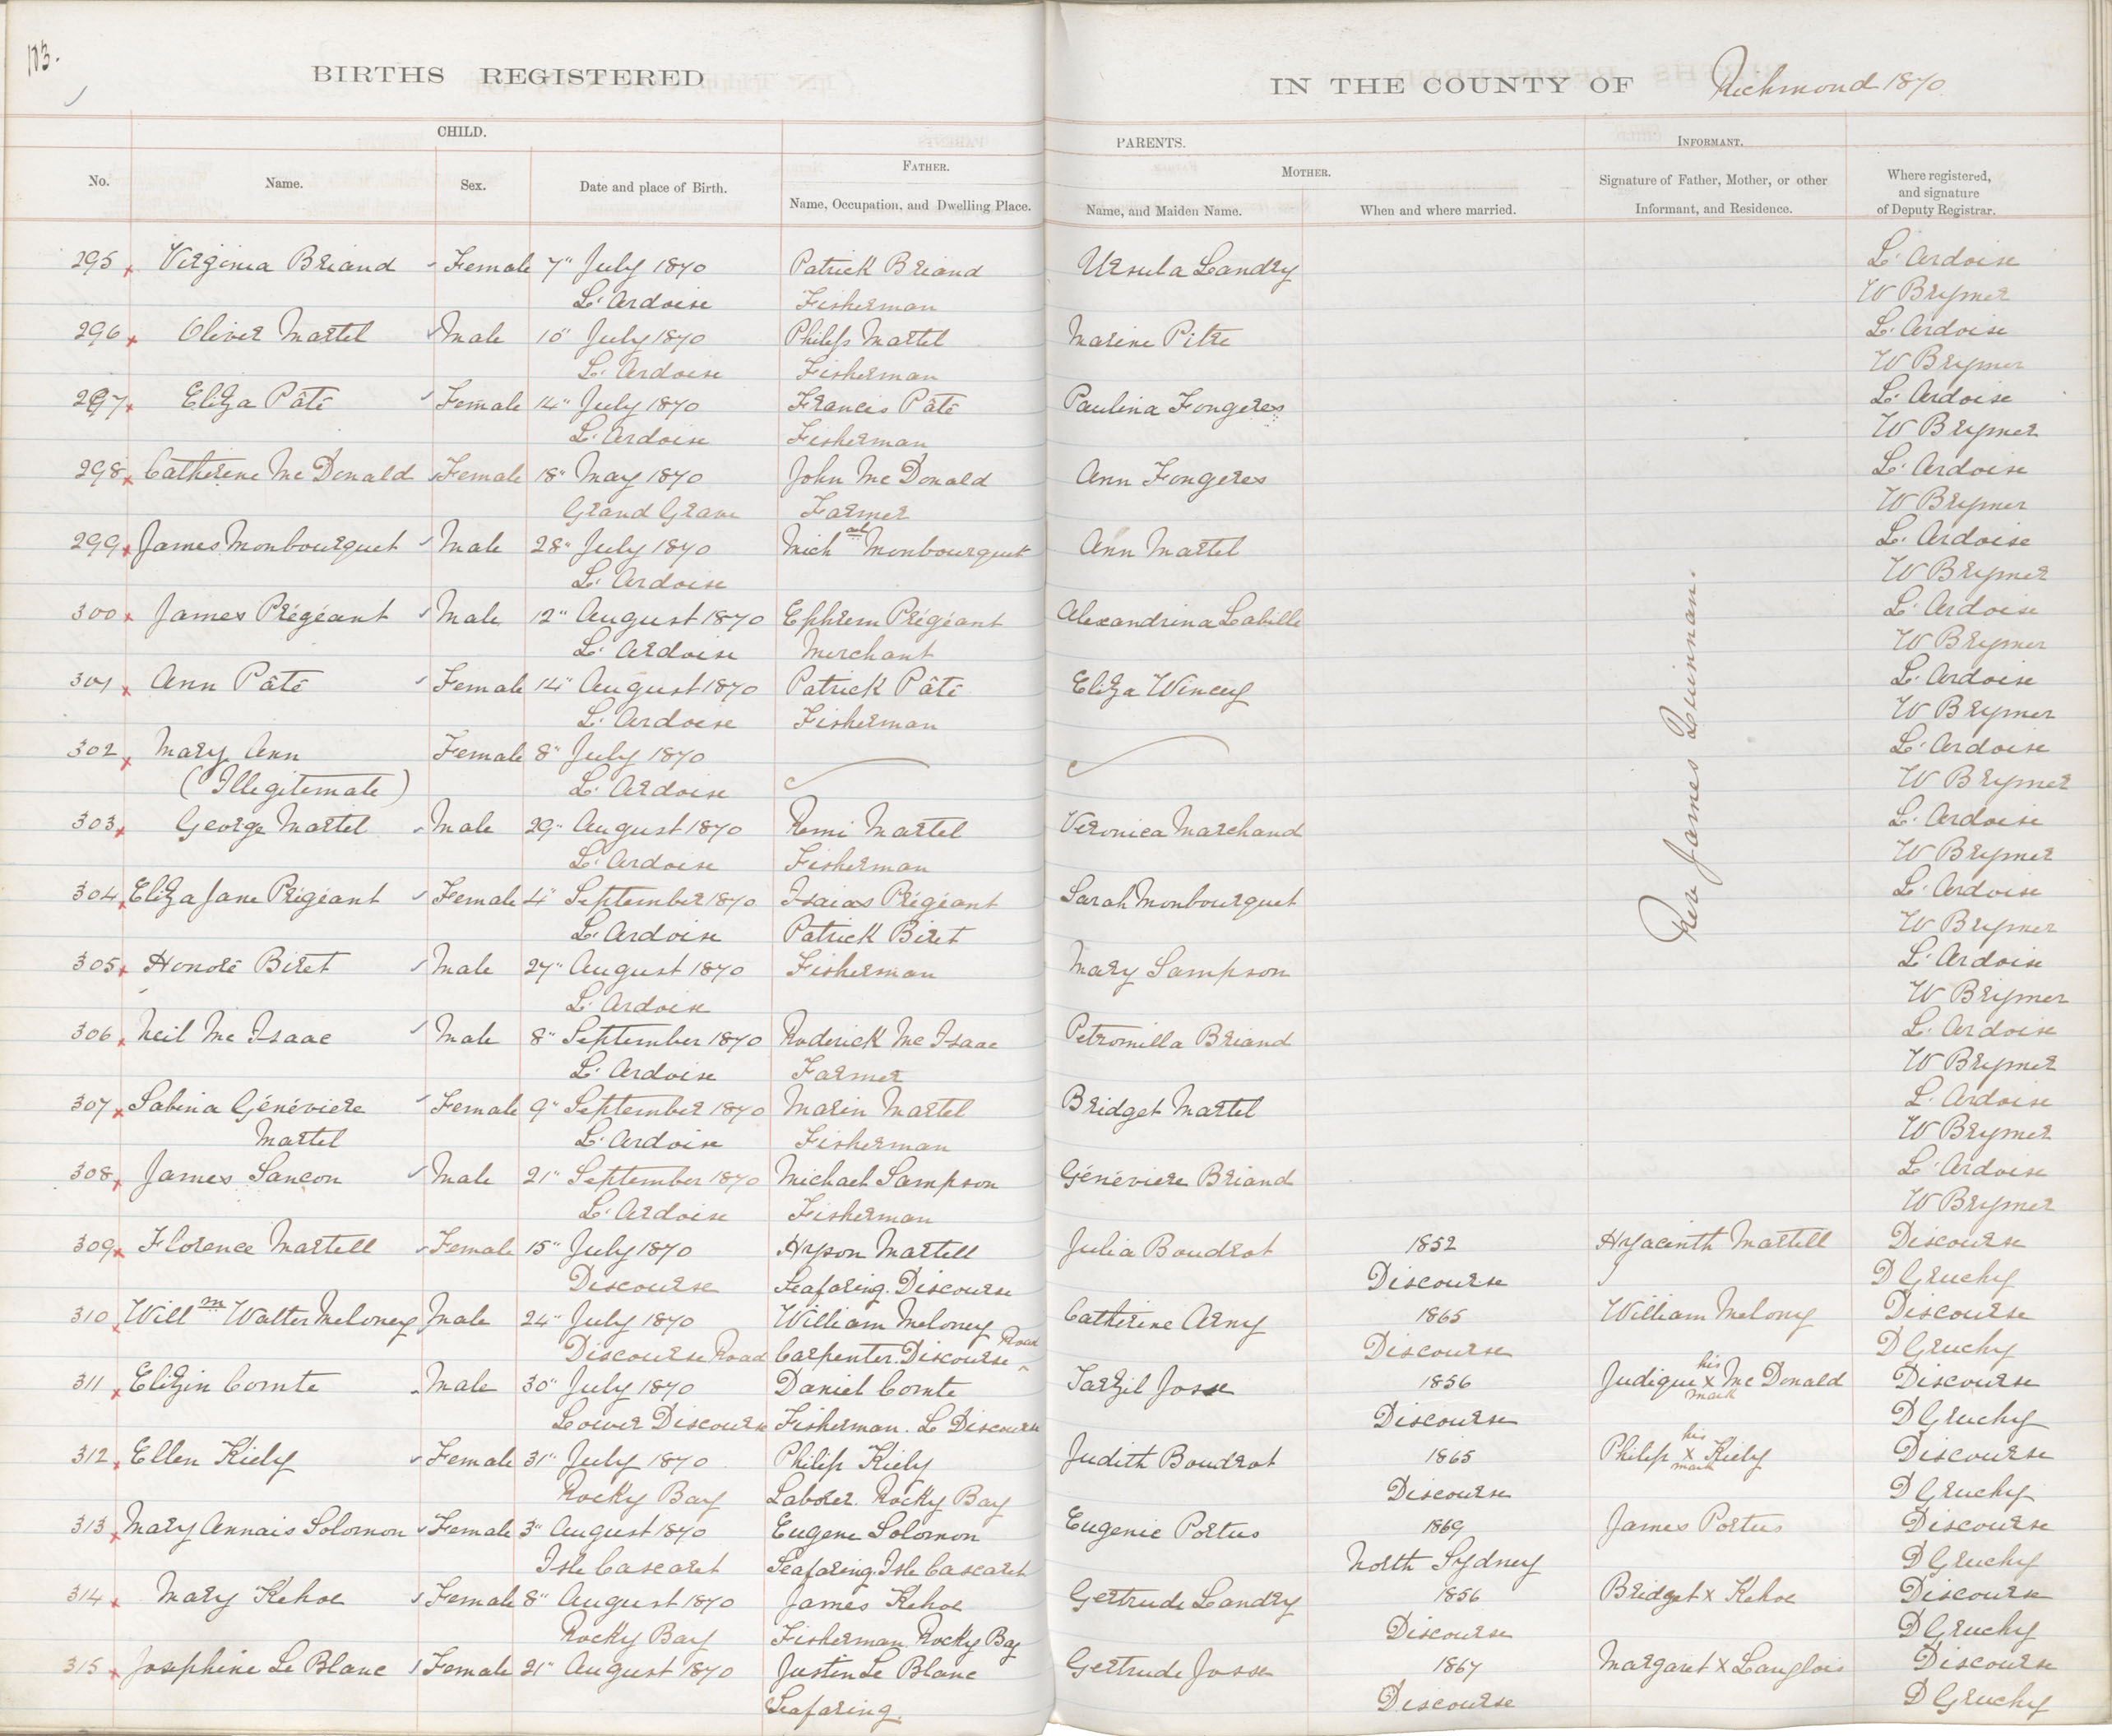 113.
BIRTHS REGISTERED IN THE COUNTY OF Richmond 1870
CHILD. PARENTS. INFORMANT.
No. Name. Sex. Date and place of Birth. FATHER. Name, Occupation, and Dwelling Place. MOTHER. Name, and Maiden Name. When and where married. Signature of Father, Mother, or other Informant, and Residence. Where registered, and signature of Deputy Registrar.
295 Virginia Briand Female 7" July 1870 Patrick Briand Ursula Landry L'Ardoise
L'Ardoise Fisherman W Brymer
296 Oliver Martel Male 10" July 1870 Philip Martel Marine Pitre L'Ardoise
L'Ardoise Fisherman W Brymer
297 Eliza Pâté Female 14" July 1870 Francis Pâté Paulina Fongeres L'Ardoise
L'Ardoise Fisherman W Brymer
298 Catherine McDonald Female 18" May 1870 John McDonald Ann Fongeres L'Ardoise
Grand Grave Farmer W Brymer
299 James Monbourquet Male 28" July 1870 Michael Monbourquet Ann Martel L'Ardoise
L'Ardoise W Brymer
300 James Prégéant Male 12" August 1870 Ephrem Prégéant Alexandrina Labille L'Ardoise
L'Ardoise Merchant W Brymer
301 Ann Pâté Female 14" August 1870 Patrick Pâté Eliza Wincey L'Ardoise
L'Ardoise Fisherman W Brymer
302 Mary Ann Female 8" July 1870 L'Ardoise
(Illegitemate) L'Ardoise W Brymer
303 George Martel Male 29" August 1870 Remi Martel Veronica Marchand L'Ardoise
L'Ardoise Fisherman W Brymer
304 Eliza Jane Prégéant Female 4" September 1870 Isaias Prégéant Sarah Monbourquet L'Ardoise
L'Ardoise Patrick Biret W Brymer
305 Honoré Biret Male 27" August 1870 Fisherman Mary Sampson L'Ardoise
L'Ardoise W Brymer
306 Neil McIsaac Male 8" September 1870 Roderick McIsaac Petromilla Briand L'Ardoise
L'Ardoise Farmer W Brymer
307 Sabina Généviere Female 9" September 1870 Marin Martel Bridget Martel L'Ardoise
Martel L'Ardoise Fisherman W Brymer
308 James Sancon Male 21" September 1870 Michael Sampson Généviere Briand L'Ardoise
L'Ardoise Fisherman W Brymer
Rev James Quinnan.
309 Florence Martell Female 15" July 1870 Hyson Martell Julia Boudrot 1852 Hyacinth Martell Discourse
Discourse Seafaring. Discourse Discourse D Gruchy
310 Willm Walter Meloney Male 24" July 1870 William Meloney Catherine Arny 1865 William Melony Discourse
Discourse Road Carpenter. Discourse Road Discourse D Gruchy
311 Elizin Comte Male 30" July 1870 Daniel Comte Tarzil Josse 1856 Judique his x mark McDonald Discourse
Lower Discourse Fisherman. L Discourse Discourse D Gruchy
312 Ellen Kiely Female 31" July 1870 Philip Kiely Judith Boudrot 1865 Philip his x mark Kiely Discourse
Rocky Bay Laborer. Rocky Bay Discourse D Gruchy
313 Mary Annais Solomon Female 3" August 1870 Eugene Solomon Eugenie Portus 1869 James Portus Discourse
Isle Cascaret Seafaring. Isle Cascaret North Sydney D Gruchy
314 Mary Kehoe Female 8" August 1870 James Kehoe Gertrude Landry 1856 Bridget x Kehoe Discourse
Rocky Bay Fisherman Rocky Bay Discourse D Gruchy
315 Josephine Le Blanc Female 21" August 1870 Justin Le Blanc Gertrude Josse 1867 Margaret x Langlois Discourse
Seafaring. Discourse D Gruchy